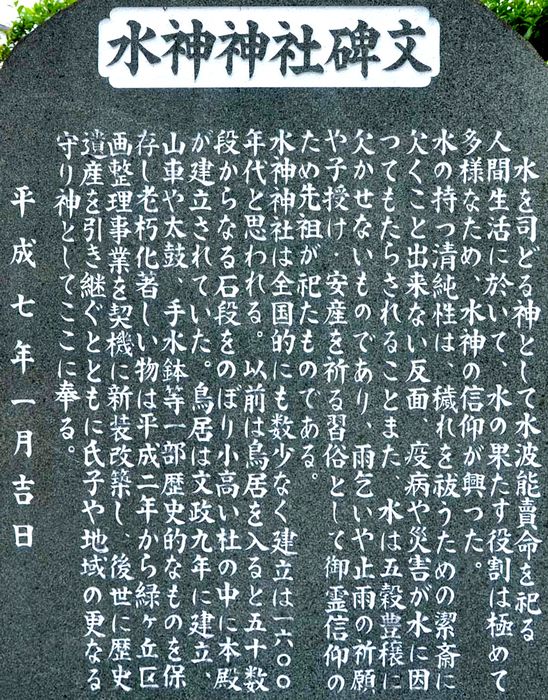 水神神社碑文
水を司どる神として水波能賣命を祀る
人間生活に於いて、水の果たす役割は極めて
多様なため、水神の信仰が興った。
水の持つ清純性は、穢れを祓うための潔斎に
欠くこと出来ない反面、疫病や災害が水に因
つてもたらされることまた、水は五穀豊穣に
欠かせないものであり、雨乞いや止雨の祈願
や子授け・安産を祈る習俗として御霊信仰の
ため先祖が祀たものである。
水神神社は全国的にも数少なく建立は一六〇〇
年代と思われる。以前は鳥居を入ると五十数
段からなる石段をのぼり小高い杜の中に本殿
が建立されていた。鳥居は文政九年に建立、
山車や太鼓、手水鉢等一部歴史的なものを保
存し老朽化著しい物は平成二年から緑ヶ丘区
画整理事業を契機に新装改築し、後世に歴史
遺産を引き継ぐとともに氏子や地域の更なる
守り神としてここに奉る。
平成七年一月吉日